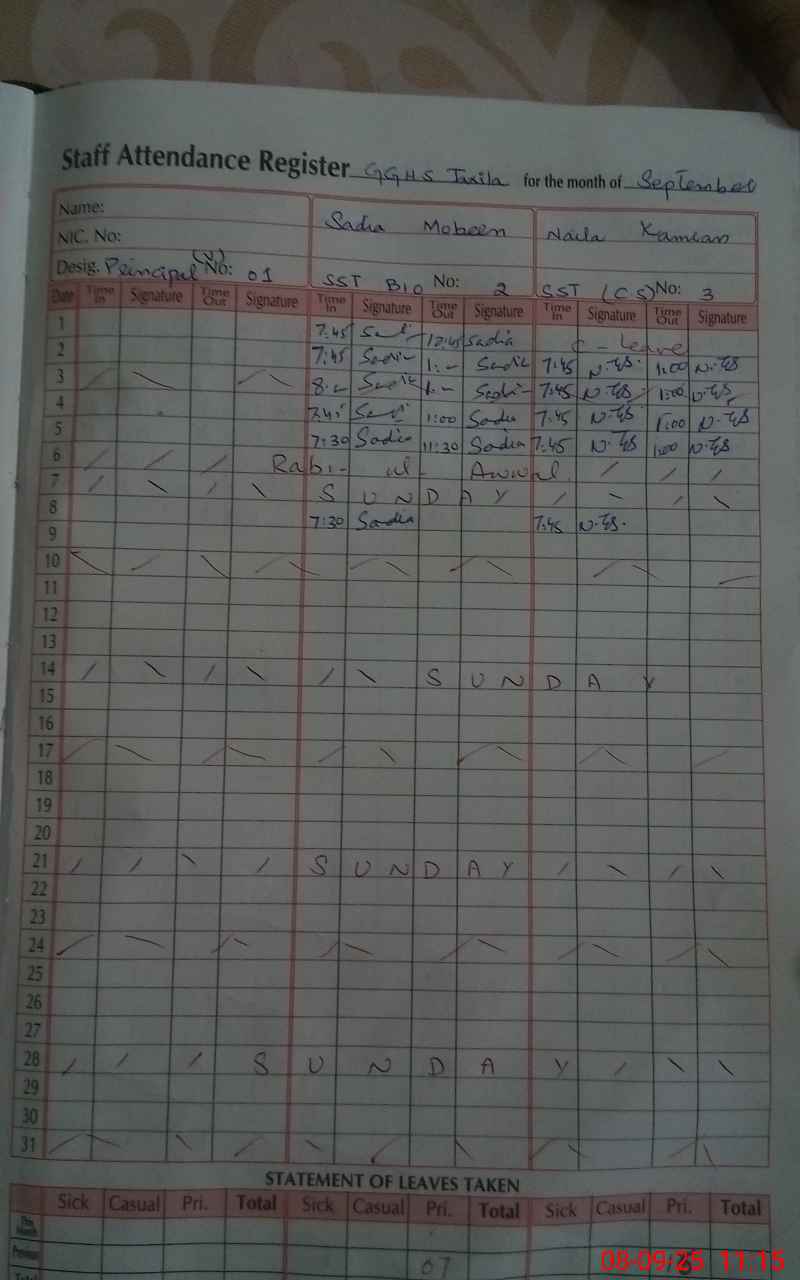 Staff Attendance Register GGHS Taxila for the month of September
Name: Sadia Mobeen Naila Kamran
NIC. No:
Desig. Principal (V) No: 01 SST Bio No: 2 SST (CS) No: 3
Date Time In Signature Time Out Signature Time In Signature Time Out Signature Time In Signature Time Out Signature
1 7:45 12:45 Sadia C-Leave
2 7:45 Sadia 1:- Sadia 7:45 1:00
3 8:- Sadia 1:- Sadia 7:45 1:00
4 7:45 1:00 Sadia 7:45 1:00
5 7:30 Sadia 11:30 Sadia 7:45 1:00
6 Rabi- ul- Awwal
7 SUNDAY
8 7:30 Sadia 7:45
9
10
11
12
13
14 SUNDAY
15
16
17
18
19
20
21 SUNDAY
22
23
24
25
26
27
28 SUNDAY
29
30
31
STATEMENT OF LEAVES TAKEN
Sick Casual Pri. Total Sick Casual Pri. Total Sick Casual Pri. Total
This Month
Previous 07
Total
08-09-25 11:15